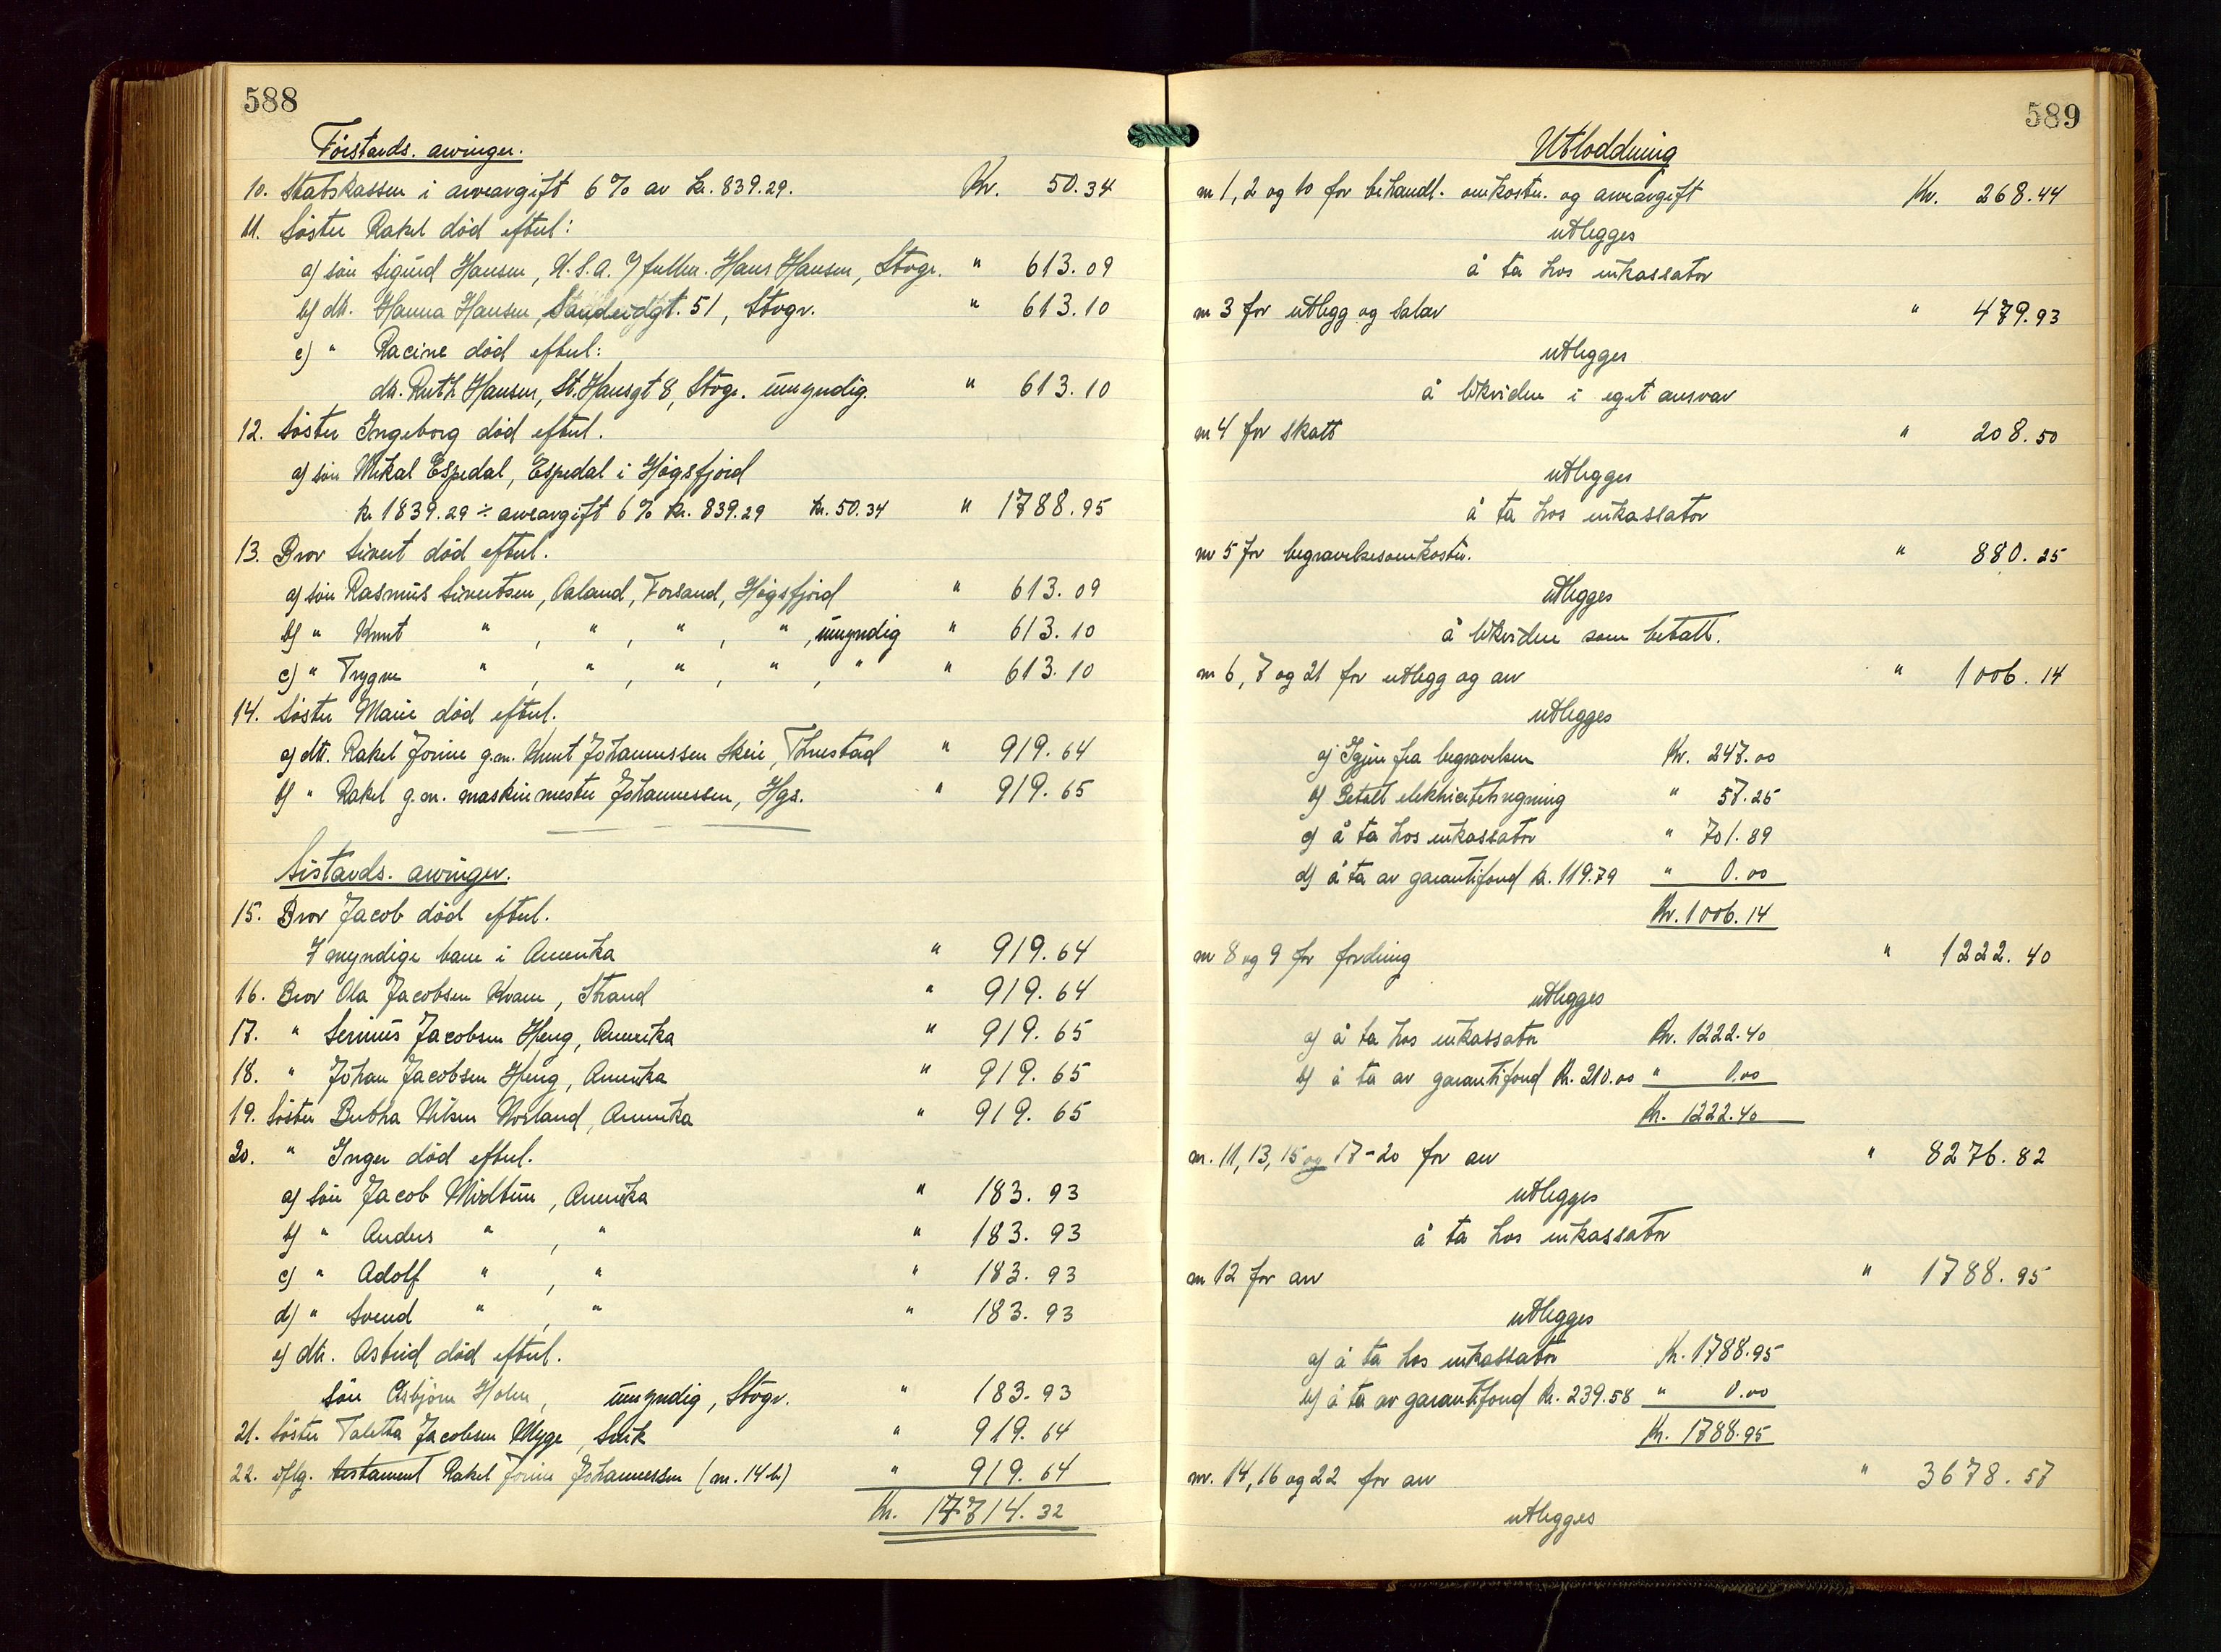 588
Förstands. arvinger.
10. Statskassen i arveavgift 6% av kr. 839.29. Kr. 50.34
11. Söster Rakel död efterl:
a) sön Sigurd Hansen, U.S.A. f fullm. Hans Hansen, Stvgr. " 613.09
b) dtr. Hanna Hansen, Sandvedgt. 51, Stvgr. " 613.10
c) " Racine död efterl:
dtr. Ruth Hansen, St. Hansgt 8, Stvgr. umyndig. " 613.10
12. Söster Ingeborg död efterl.
a) sön Mikal Espedal, Espedal i Högsfjord
kr 1839.29 ÷ arveavgift 6% kr. 839.29 kr. 50.34 " 1788.95
13. Bror Sivert död efterl.
a) sön Rasmus Sivertsen, Aaland, Forsand, Högsfjord " 613.09
b) " Knut " , " , " , " , umyndig " 613.10
c) " Trygve " , " , " , " , " " 613.10
14. Söster Marie död efterl.
a) dtr. Rakel Jorine g.m. Knut Johannessen Skeie, Thustad " 919.64
b) " Rakel g.m. maskinmester Johannessen, Hgs. " 919.65
Sistands. arvinger.
15. Bror Jacob död efterl.
7 myndige barn i Amerika " 919.64
16. Bror Ola Jacobsen Kvam, Strand " 919.64
17. " Serinus Jacobsen Heng, Amerika " 919.65
18. " Johan Jacobsen Heng, Amerika " 919.65
19. Söster Bertha Nilsen Norland, Amerika " 919.65
20. " Inger död efterl.
a) sön Jacob Midtun, Amerika " 183.93
b) " Anders " , " " 183.93
c) " Adolf " , " " 183.93
d) " Svend " , " " 183.93
e) dtr. Astrid död efterl.
sön Asbjörn Holm, umyndig, Stvgr. " 183.93
21. Söster Taletta Jacobsen Myge, " 919.64
22. iflg. testament Rakel Jorine Johannessen (nr. 14 b) " 919.64
Kr. 17714.32
589
Utloddning
nr 1, 2 og 10 for behandl. omkostn. og arveavgift Kr. 268.44
utlegges
å ta hos inkassator
nr 3 for utlegg og salar " 479.93
utlegges
å likvidere i eget ansvar
nr 4 for skatt " 208.50
utlegges
å ta hos inkassator
nr 5 for begravelsesomkostn. " 880.25
utlegges
å likvidere som betalt.
nr 6, 7 og 21 for utlegg og arv " 1006.14
utlegges
a) Igjen fra begravelsen Kr. 247.00
b) Betalt elektricitetsregning " 57.25
c) å ta hos inkassator " 701.89
d) å ta av garantifond kr. 119.79 " 0.00
Kr. 1006.14
nr 8 og 9 for fordring " 1222.40
utlegges
a) å ta hos inkassator Kr. 1222.40
b) å ta av garantifond kr. 210.00 " 0.00
Kr. 1222.40
nr. 11, 13, 15 og 17-20 for arv " 8276.82
utlegges
å ta hos inkassator
nr 12 for arv " 1788.95
utlegges
a) å ta hos inkassator Kr. 1788.95
b) å ta av garantifond Kr. 239.58 " 0.00
Kr. 1788.95
nr. 14, 16 og 22 for arv " 3678.57
utlegges